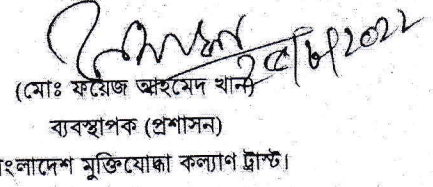 ২৫/৮/2022
(মোঃ ফয়েজ আহমেদ খান)
ব্যবস্থাপক (প্রশাসন)
ংলাদেশ মুক্তিযোদ্ধা কল্যাণ ট্রাস্ট।